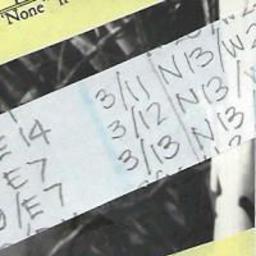 "None"
E 14 3/11 N13/W2
E 7 3/12 N13/
/E 7 3/13 N13